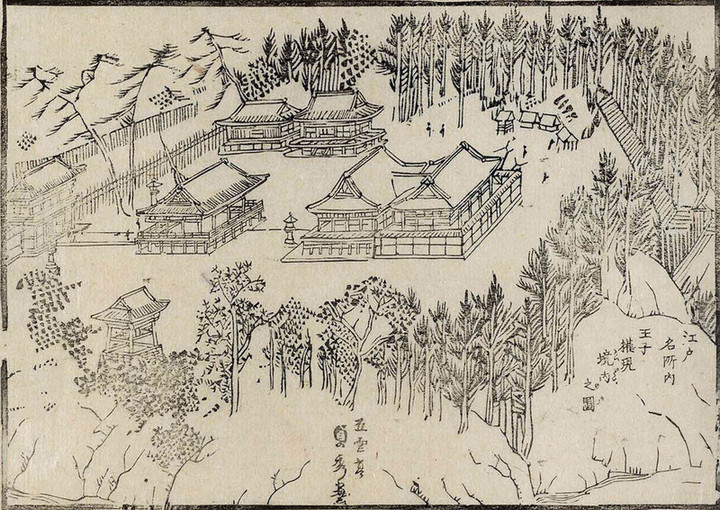 江戸
名所内
王子
権現
境内
之圖
五雲亭
貞秀畫